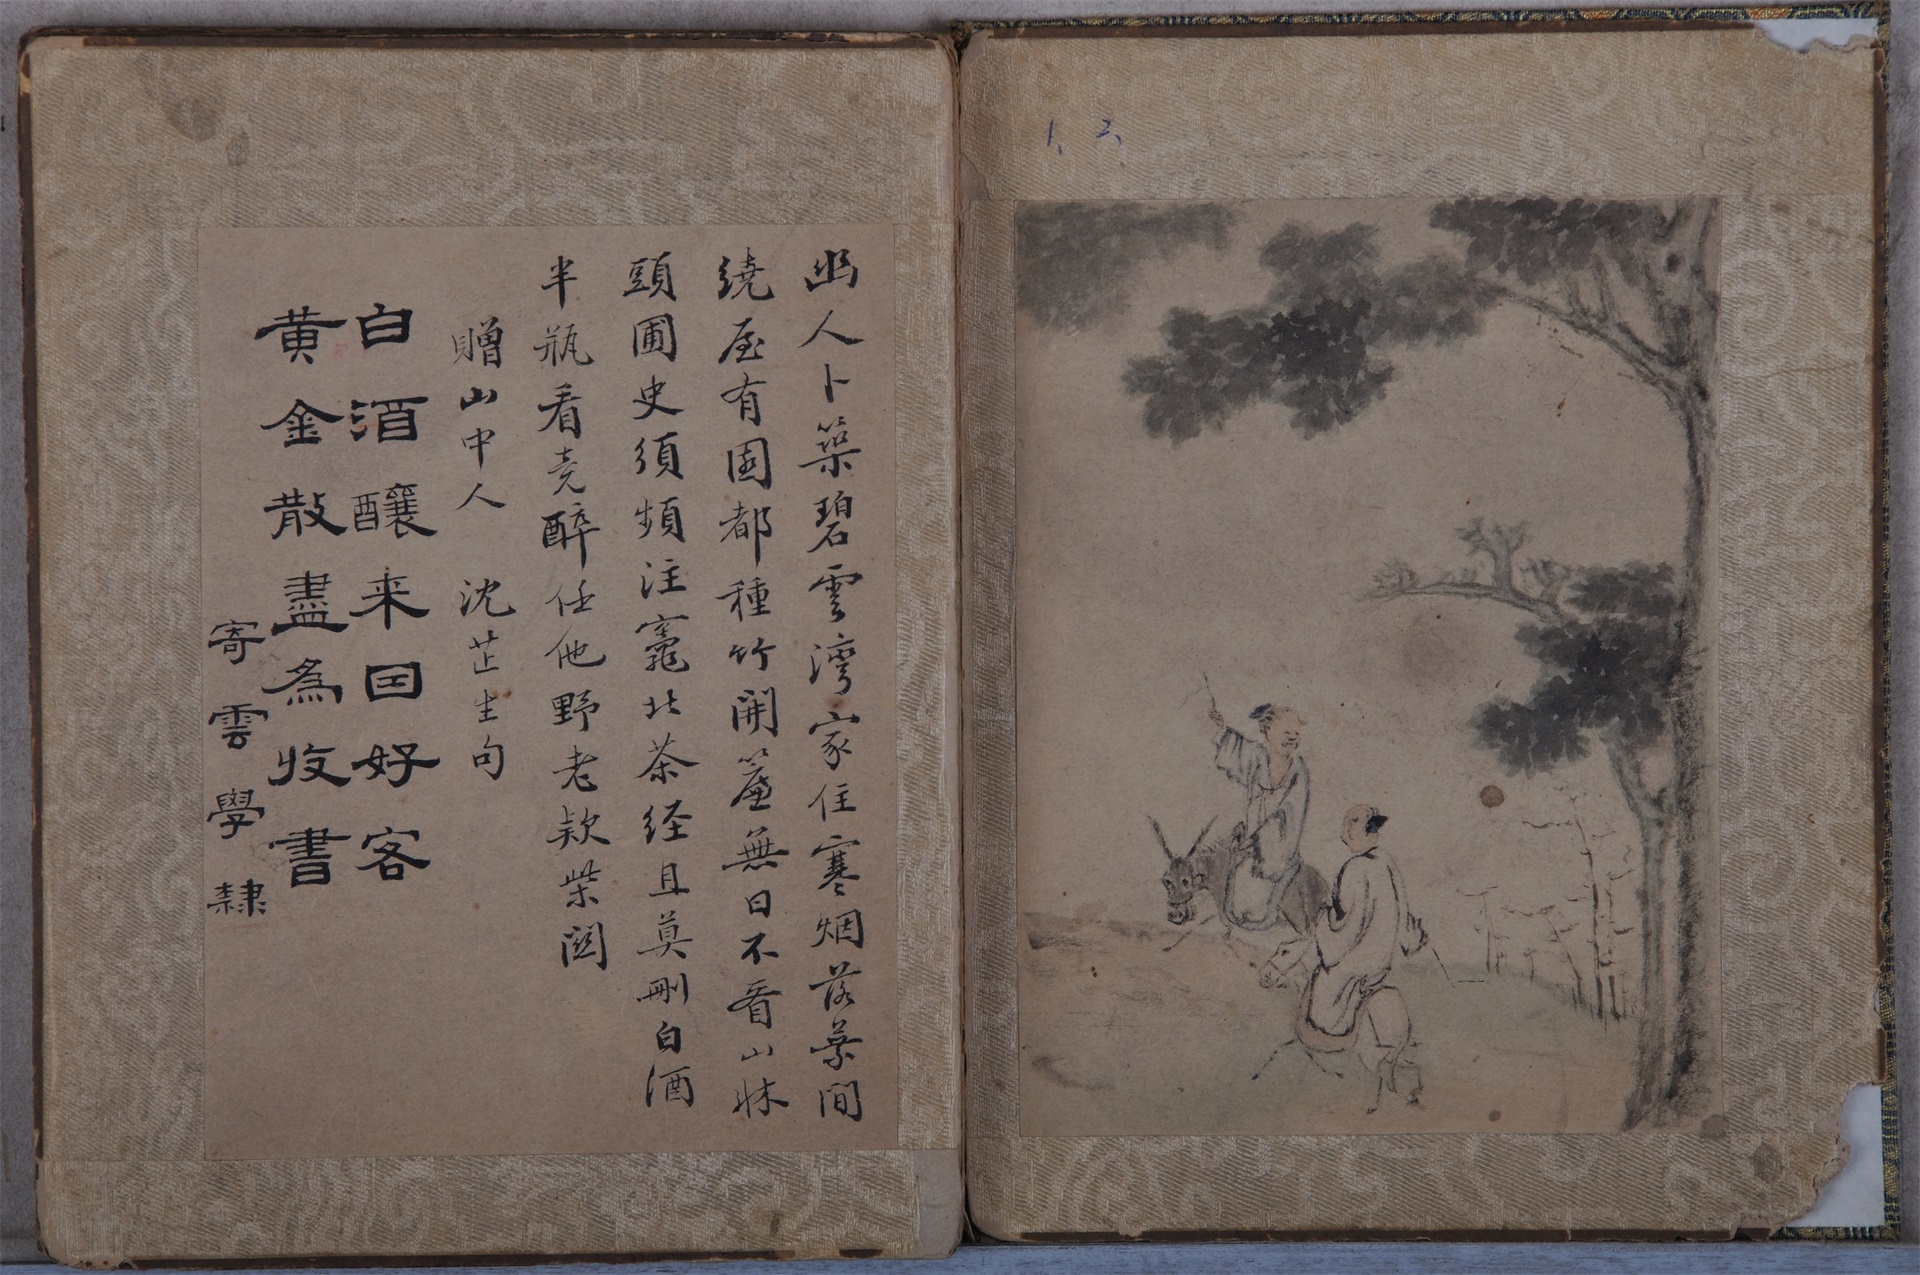 1、2、
幽人卜築碧雲灣家住寒烟落葉間
繞屋有園都種竹開簾無日不看山牀
頭圃史須頻注竈北茶経且莫刪白酒
半瓶看竞醉任他野老款柴関
贈山中人　沈芷生句
白酒釀来囙好客
黄金散盡為收書
寄雲學隸